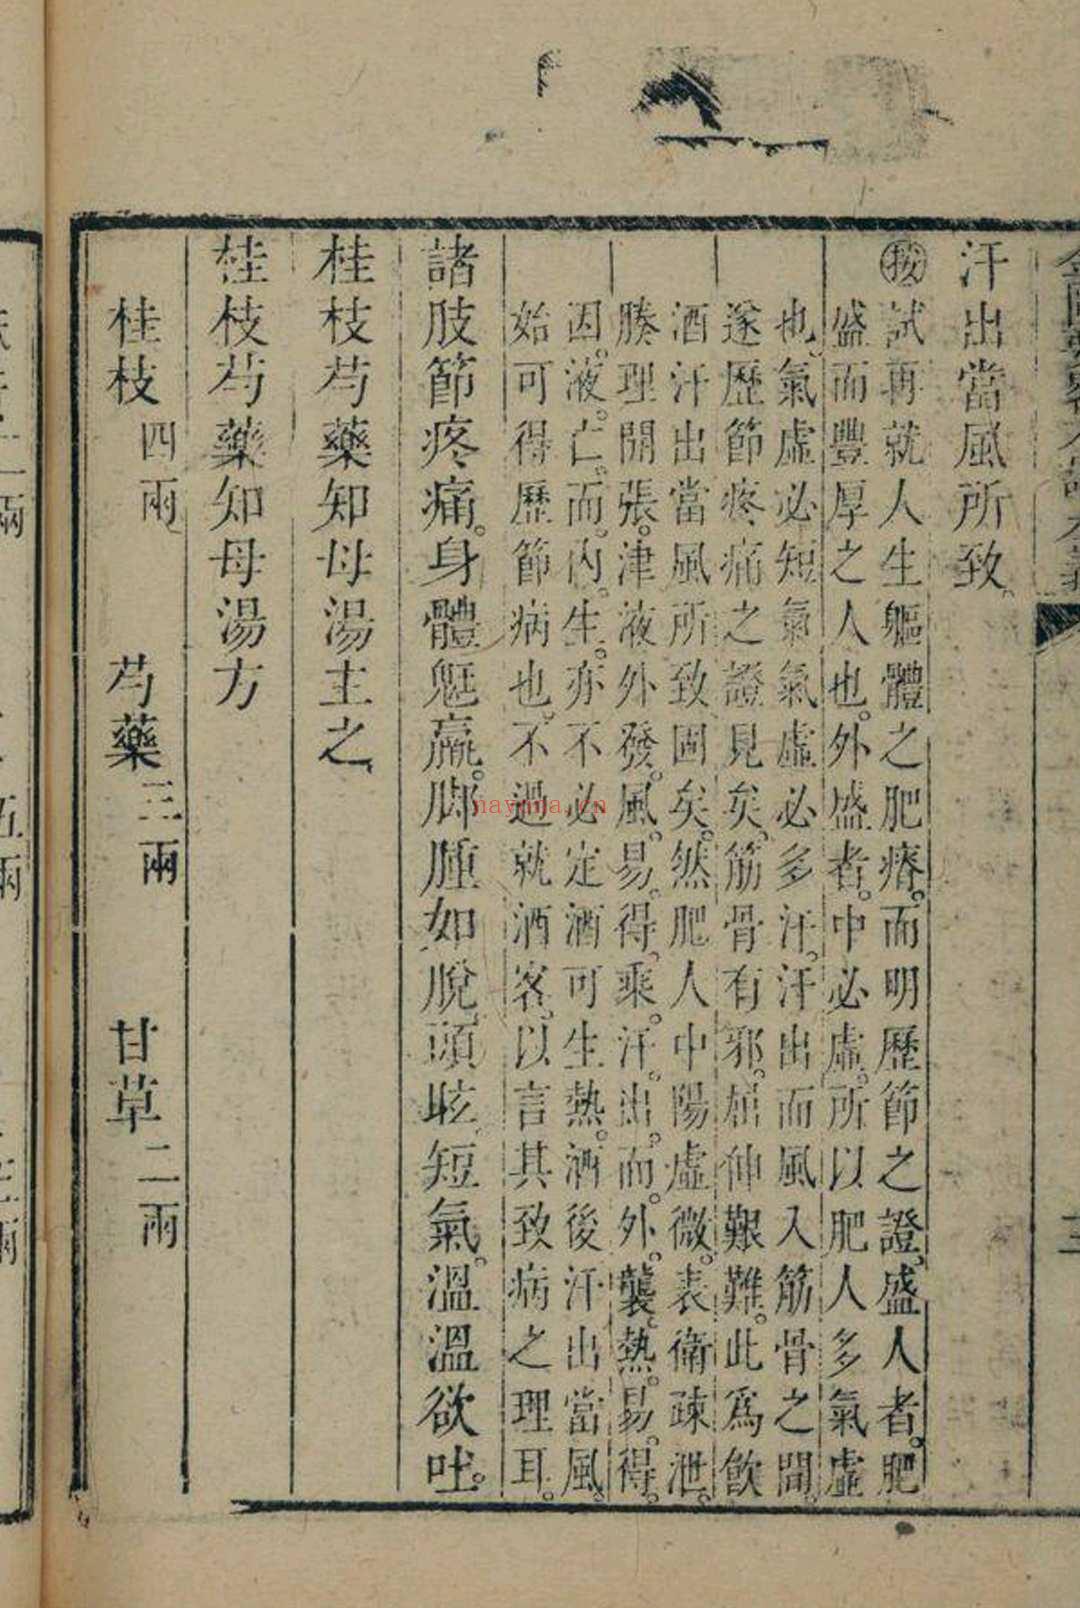 汗出當風所致。
按試再就人生軀體之肥瘠。而明歷節之證。盛人者。肥
盛而豐厚之人也。外盛者。中必虛。所以肥人多氣虛
也。氣虛必短氣。氣虛必多汗。汗出而風入筋骨之間。
遂歷節疼痛之證見矣。筋骨有邪。屈伸艱難。此爲飲
酒汗出當風所致固矣。然肥人中陽虛微。表衛疎泄。
腠理開張。津液外發。風。易。得。乘。汗。出。而。外。襲。熱。易。得。
因。液。亡。而。內。生。亦不必定酒可生熱。酒後汗出當風。
始可得歷節病也。不過就酒客。以言其致病之理耳。
諸肢節疼痛。身體尪羸。脚腫如脫。頭眩短氣。溫溫欲吐。
桂枝芍藥知母湯主之
桂枝芍藥知母湯方
桂枝四兩 芍藥三兩 甘草二兩